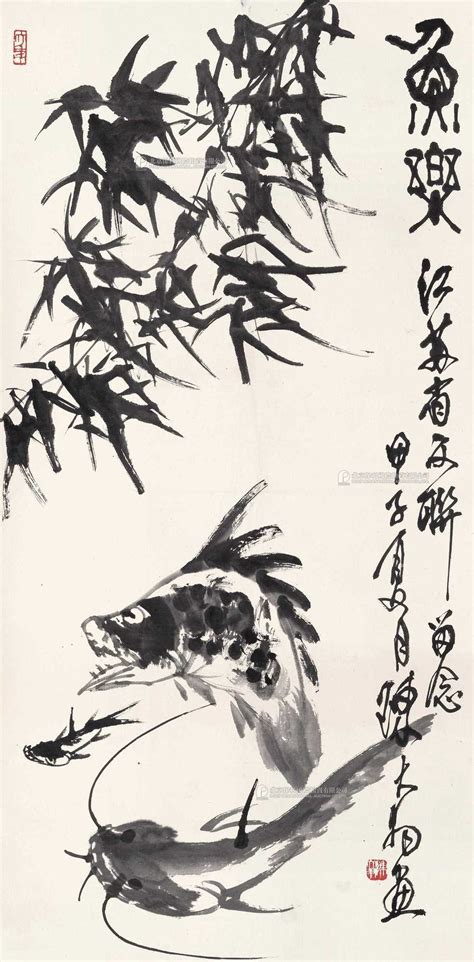 魚樂
江苏省文聯留念
甲子夏月陳大羽畫